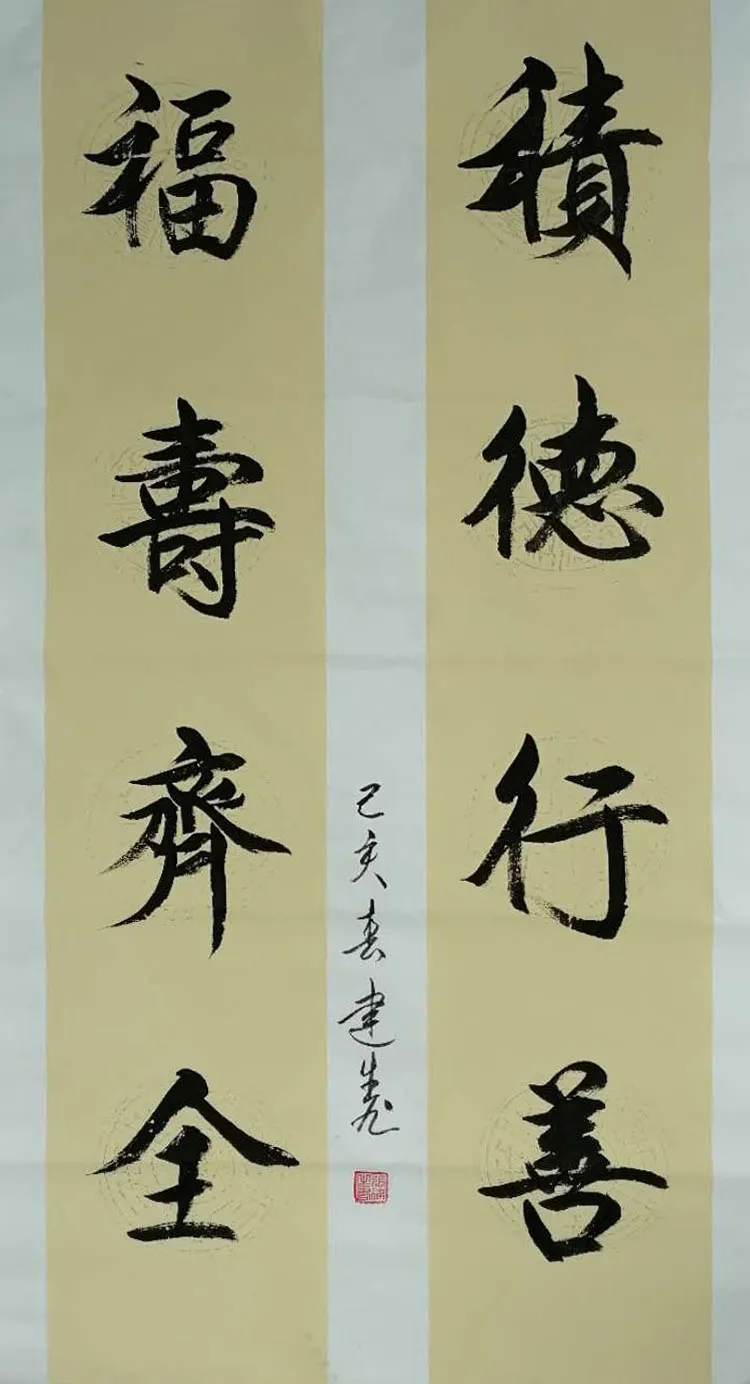 積德行善
福壽齊全
己亥春建生书